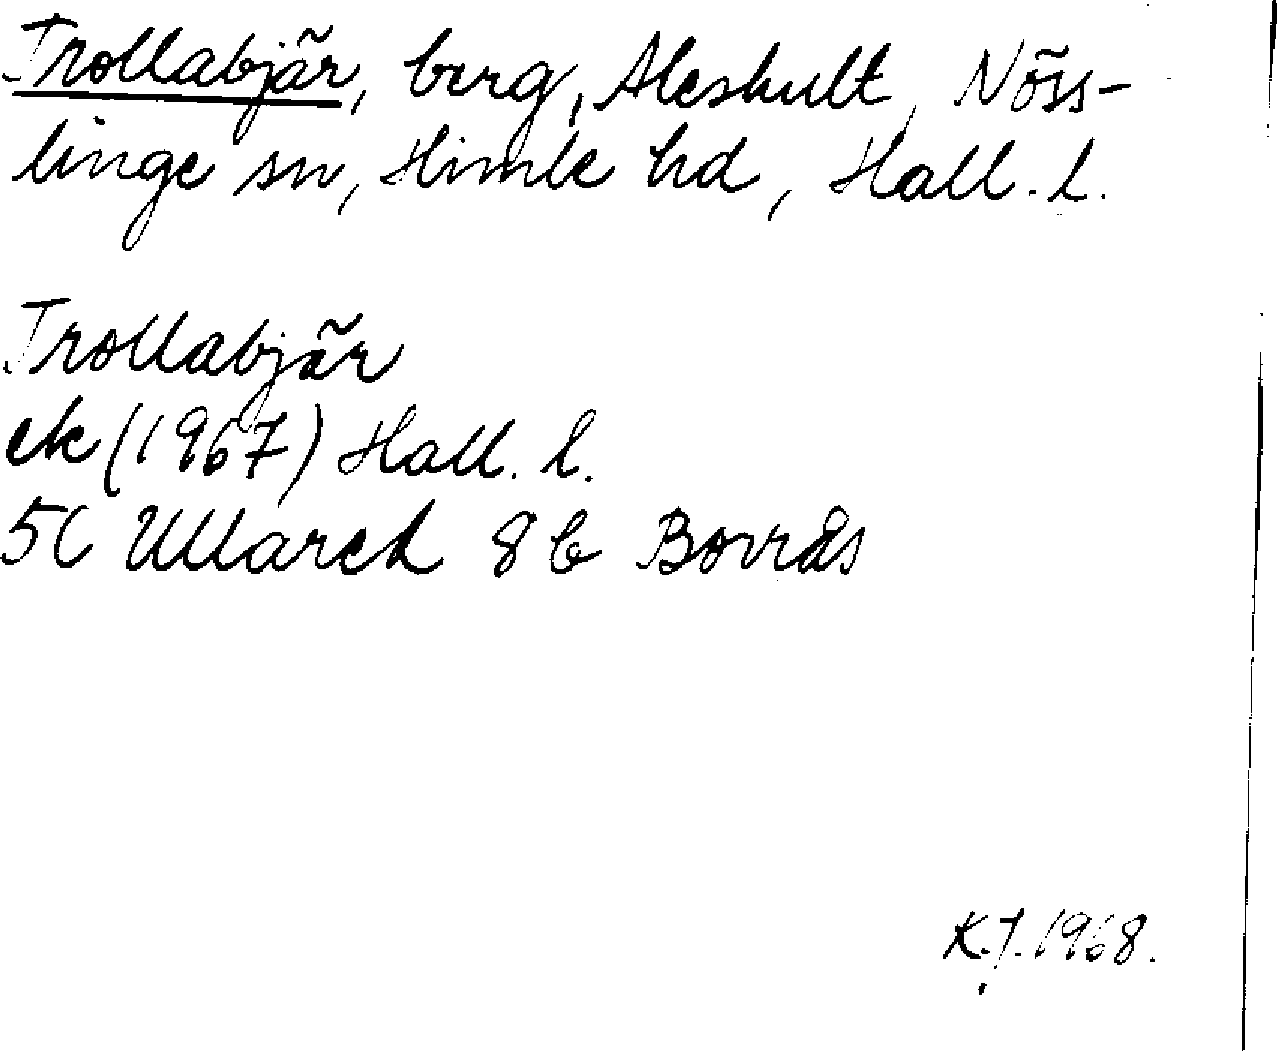 Trollabjär, berg, Aleskult, Nöss-
linge sn, Himle hd, Hall. l.
Trollabjär
ek (1967) Hall. l.
5C Ullared 8b Bovrås
K.J. 1968.